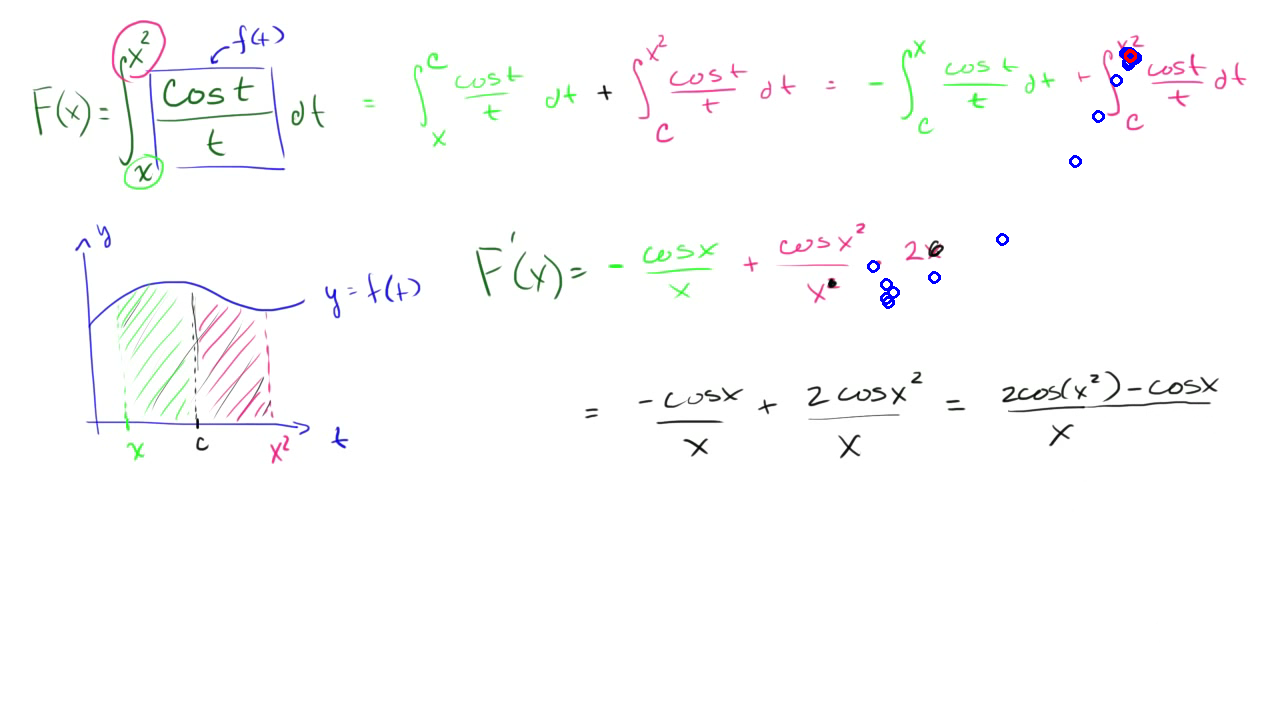 F(x) = ∫_x^{x²} cos t / t dt = ∫_x^c cos t / t dt + ∫_c^{x²} cos t / t dt = - ∫_c^x cos t / t dt + ∫_c^{x²} cos t / t dt
f(t)
F'(x) = - cos x / x + cos x² / x · 2
y
y = f(t)
x c x² t
= -cos x / x + 2 cos x² / x = 2cos(x²) - cos x / x